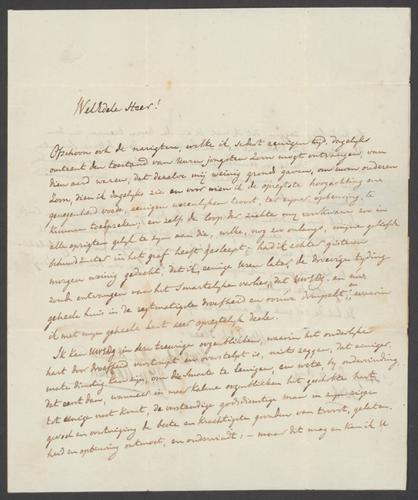 WelEdele Heer!
Ofschoon ook de narigten, welke ik, sedert eenigen tijd, dagelijks
omtrent den toestand van Uwen jongsten Zoon mogt ontvangen, van
dien aard waren, dat dezelve mij weinig grond gaven, om mijn anderen
Zoon, dien ik dagelijks zie en voor wien ik de opregtste hoogachting en
genegenheid voede, eenigen wezenlijken troost, ter zijner opbeuring, te
kunnen toespreken, en zelfs de loop der ziekte mij voorkwam zoo in
alle opzigten gelijk te zijn aan die, welke, nog zoo onlangs, mijne geliefde
in het graf heeft gesleept: had ik echter gisteren
morgen weinig gedacht, dat ik, eenige uren later, de droevige tijding
zoude ontvangen van het smartelijke verlies, dat UWEdg. en uw
geheele huis in de regtmatigste droefheid en rouwe dompelt, en waarin
ik met mijn geheele hart zeer opregtelijk deele.
Ik kan UWEdg. in deze treurige oogenblikken, waarin het ouderlijke
hart door droefheid verstompt en overstelpt is, niets zeggen, dat eeniger
mate dienstig kan zijn, om die smarte te lenigen, en weet, bij ondervinding,
dat eerst dan, wanneer in meer kalme oogenblikken het geschokte hart
tot eenige rust komt, de verstandige godsdienstige man in zijn eigen
gevoel en overtuiging de beste en krachtigste gronden van troost, gelaten-
heid en opbeuring ontmoet, en ondervindt; – maar dit mag en kan ik U